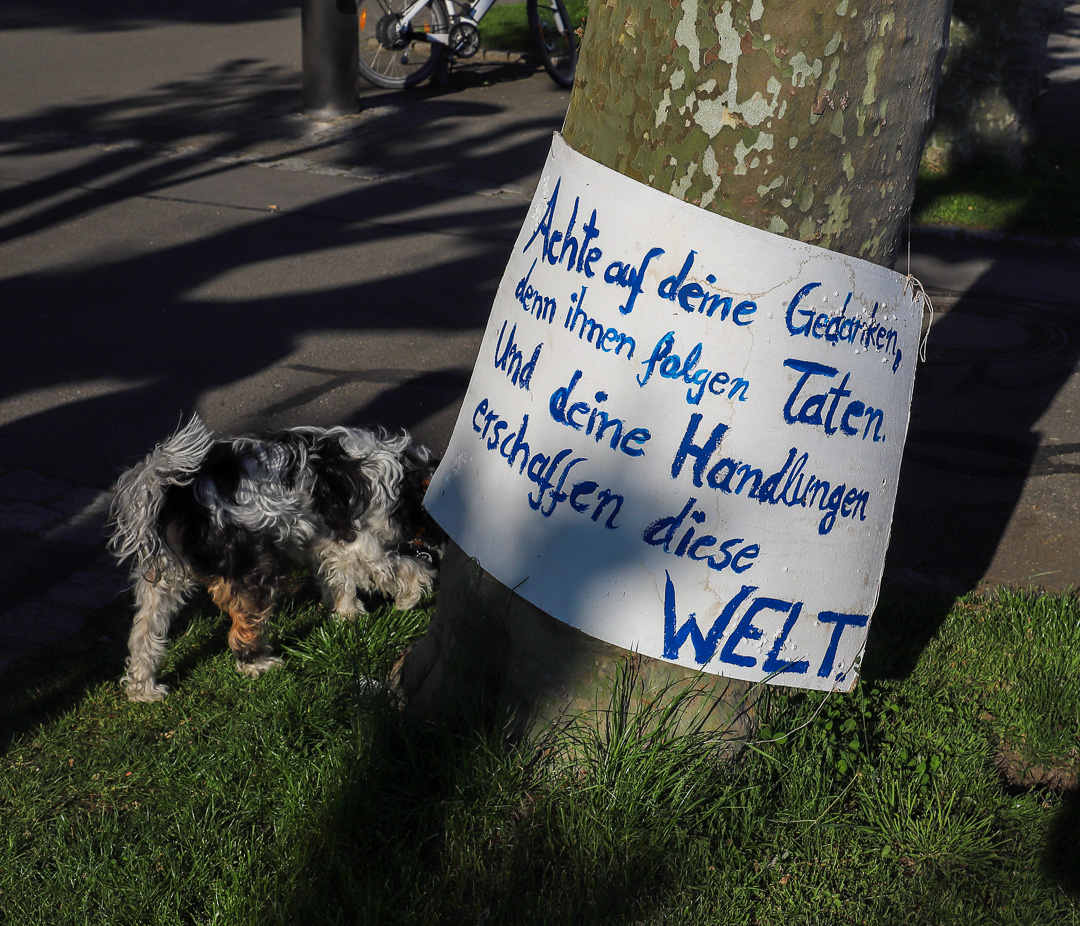 Achte auf deine Gedanken,
denn ihnen folgen Taten.
Und deine Handlungen
erschaffen diese
WELT.